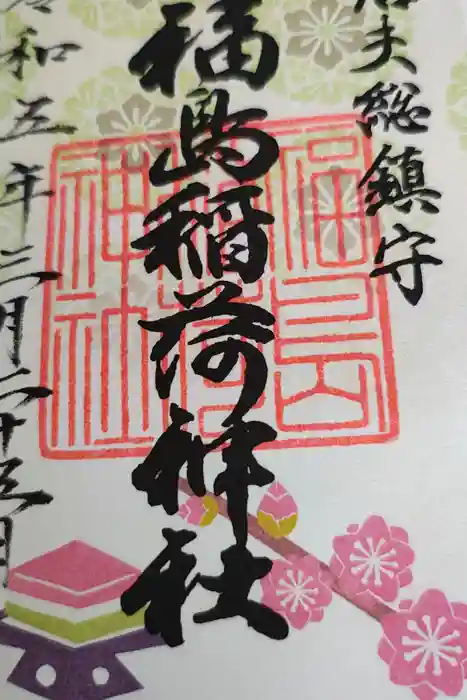 信夫総鎮守
福島稲荷神社
令和五年三月二十三日